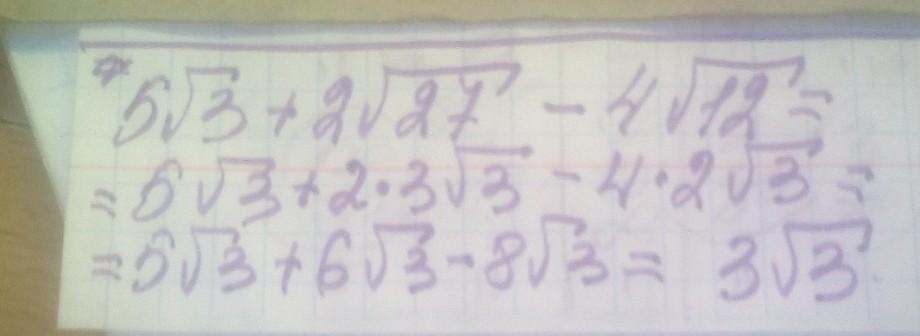 5√3 + 2√27 - 4√12 =
= 5√3 + 2·3√3 - 4·2√3 =
= 5√3 + 6√3 - 8√3 = 3√3